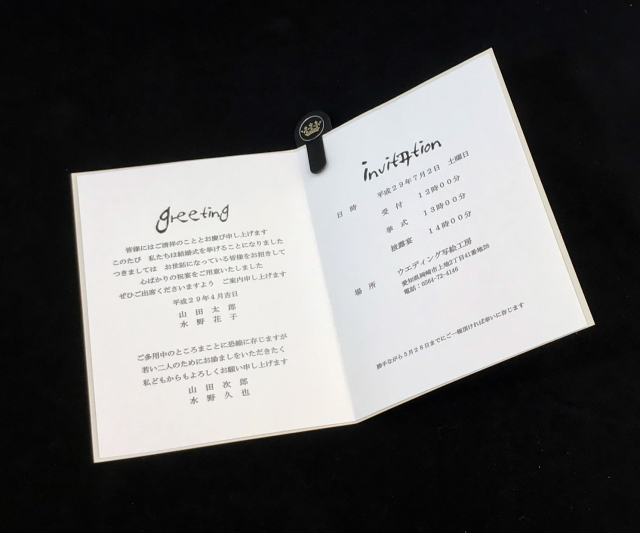 greeting
皆様にはご清祥のこととお慶び申し上げます
このたび 私たちは結婚式を挙げることになりました
つきましては お世話になっている皆様をお招きして
心ばかりの祝宴をご用意いたしました
ぜひご出席くださいますよう ご案内申し上げます
平成29年4月吉日
山田太郎
水野花子
ご多用中のところまことに恐縮に存じますが
若い二人のためにお励ましをいただきたく
私どもからもよろしくお願い申し上げます
山田次郎
水野久也
invitation
日時 平成29年7月2日 土曜日
受付 12時00分
挙式 13時00分
披露宴 14時00分
場所 ウエディング写絵工房
愛知県岡崎市上地2丁目41番地26
電話:0564-72-4146
勝手ながら5月28日までにご一報頂ければ幸いに存じます